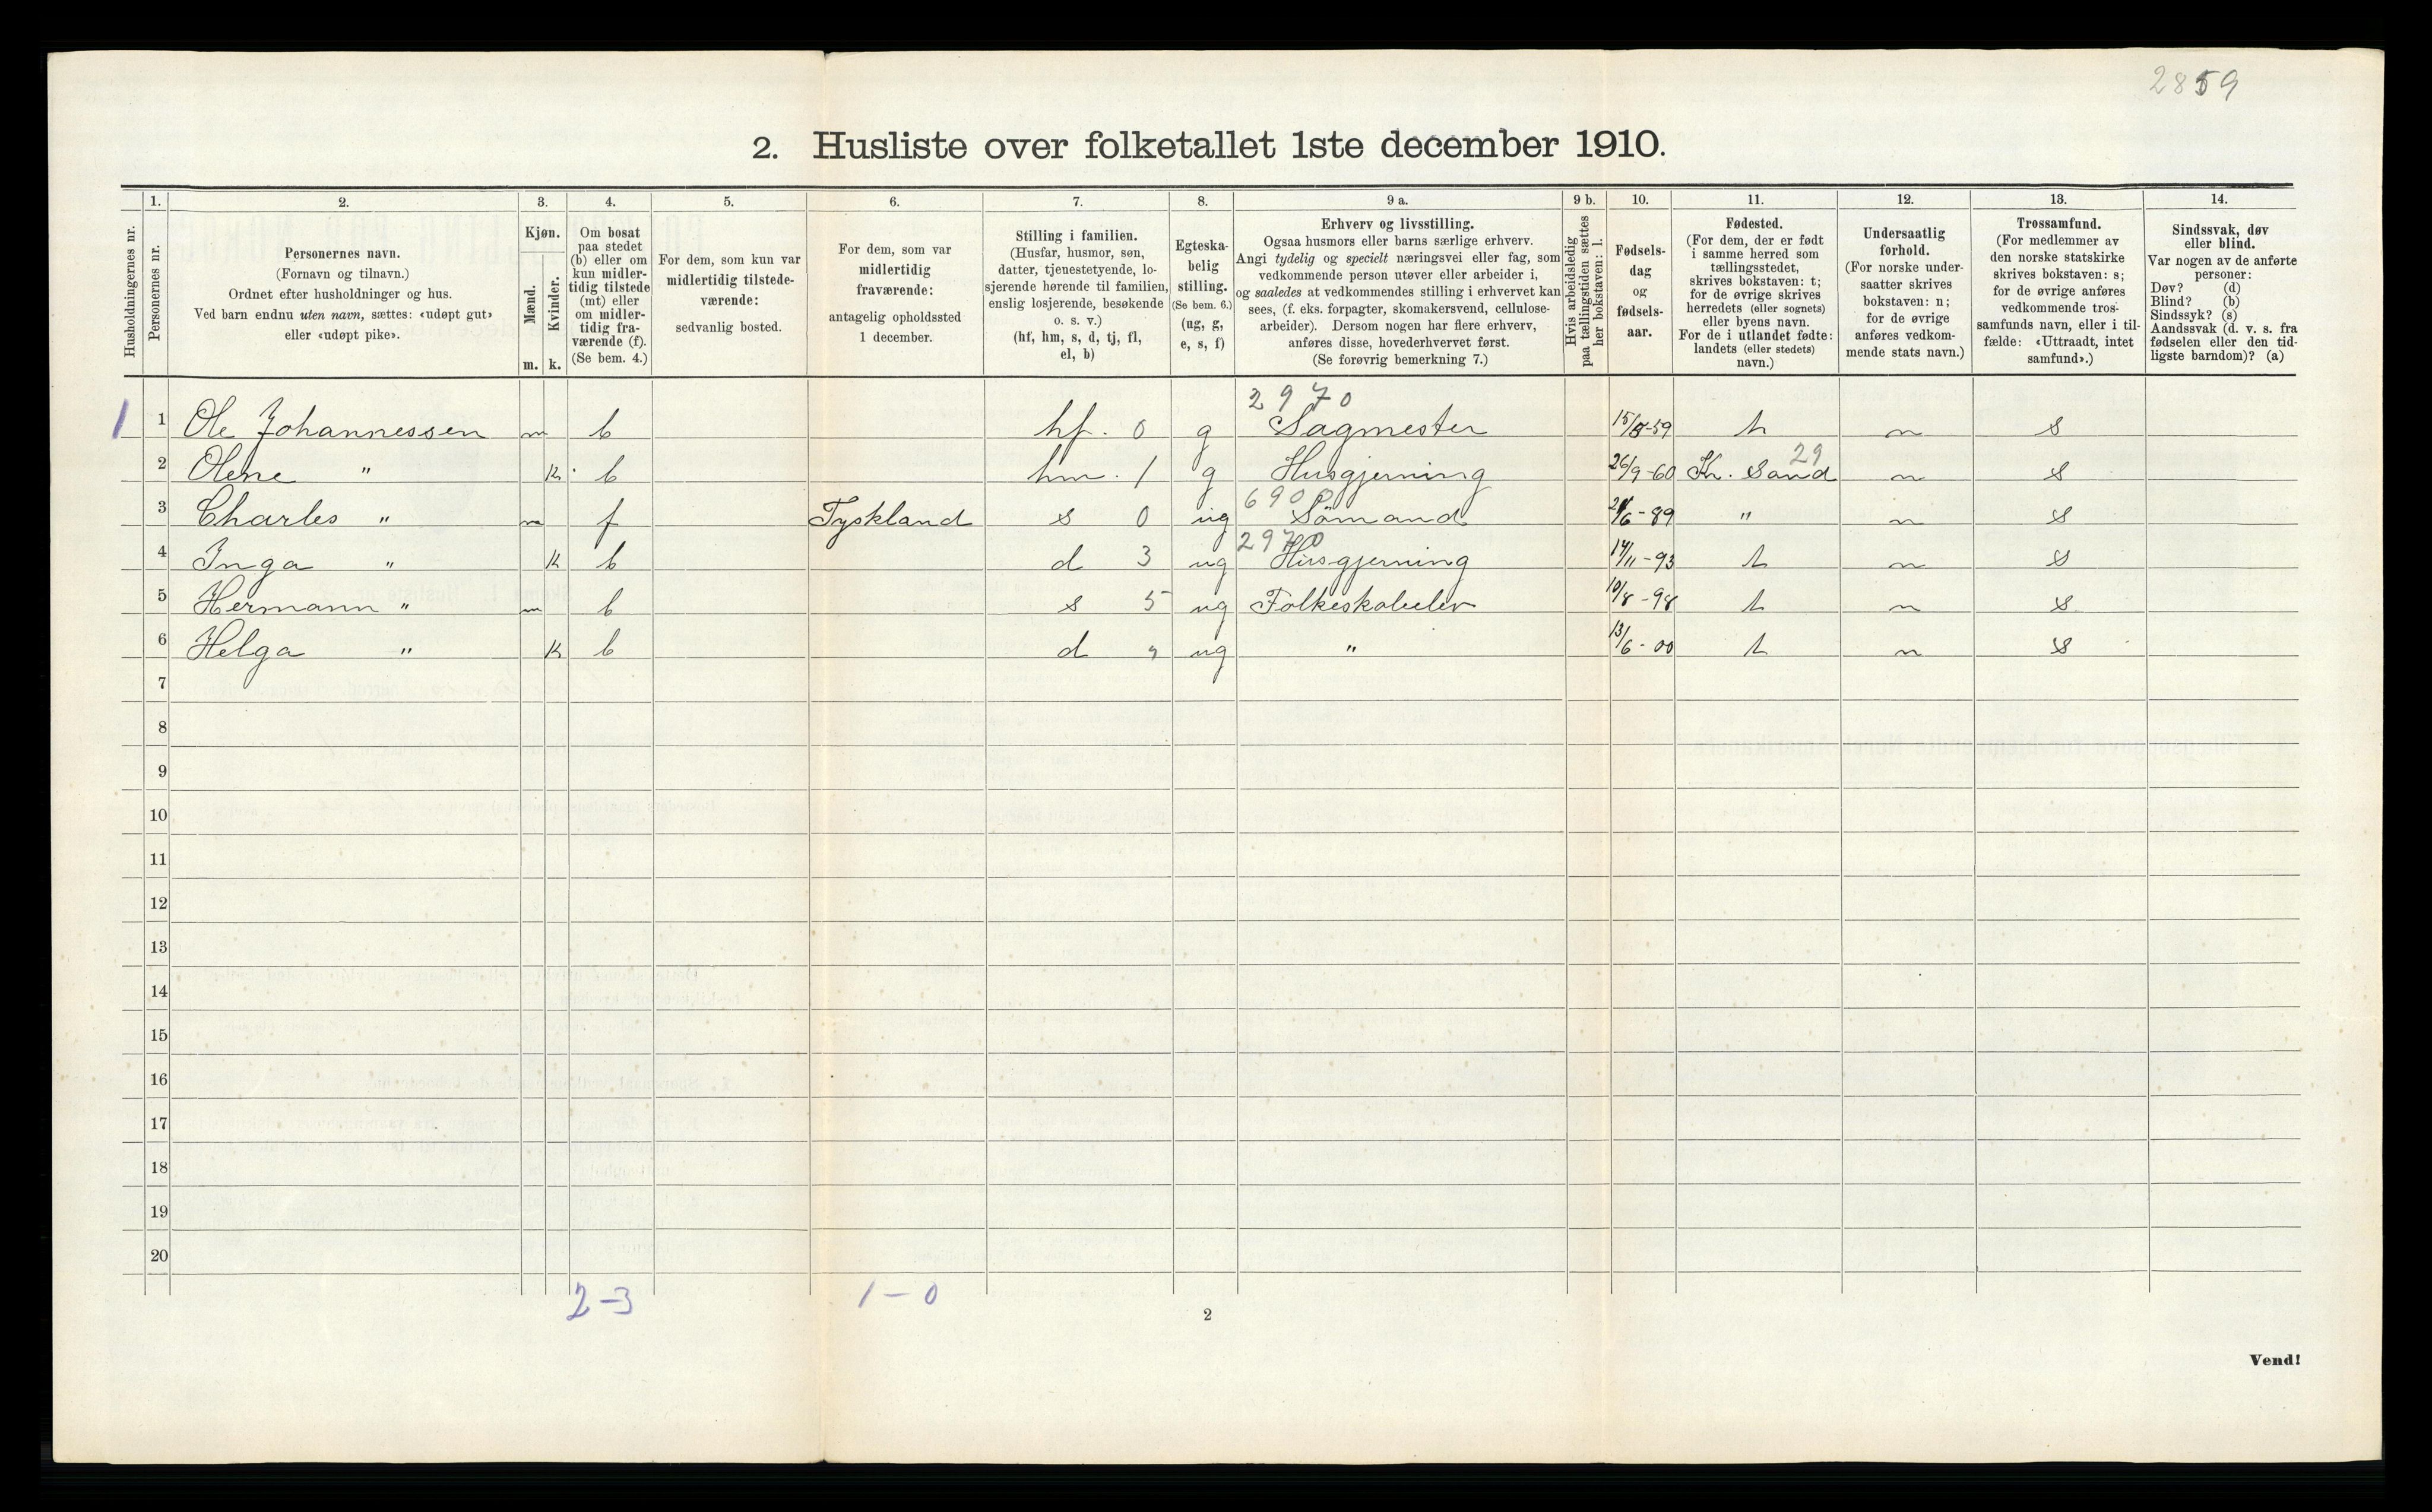 2859
2. Husliste over folketallet 1ste december 1910.
Husholdningernes nr.
1.
Personernes nr.
2.
Personernes navn.
(Fornavn og tilnavn.)
Ordnet efter husholdninger og hus.
Ved barn endnu uten navn, sættes: «udøpt gut»
eller «udøpt pike».
3.
Kjøn.
Mænd.
m.
Kvinder.
k.
4.
Om bosat
paa stedet
(b) eller om
kun midler-
tidig tilstede
(mt) eller
om midler-
tidig fra-
værende (f).
(Se bem. 4.)
5.
For dem, som kun var
midlertidig tilstede-
værende:
sedvanlig bosted.
6.
For dem, som var
midlertidig
fraværende:
antagelig opholdssted
1 december.
7.
Stilling i familien.
(Husfar, husmor, søn,
datter, tjenestetyende, lo-
sjerende hørende til familien,
enslig losjerende, besøkende
o. s. v.)
(hf, hm, s, d, tj, fl,
el, b)
8.
Egteska-
belig
stilling.
(Se bem. 6.)
(ug, g,
e, s, f)
9 a.
Erhverv og livsstilling.
Ogsaa husmors eller barns særlige erhverv.
Angi tydelig og specielt næringsvei eller fag, som
vedkommende person utøver eller arbeider i,
og saaledes at vedkommendes stilling i erhvervet kan
sees, (f. eks. forpagter, skomakersvend, cellulose-
arbeider). Dersom nogen har flere erhverv,
anføres disse, hovederhvervet først.
(Se forøvrig bemerkning 7.)
9 b.
Hvis arbeidsledig
paa tællingstiden sættes
her bokstaven: l.
10.
Fødsels-
dag
og
fødsels-
aar.
11.
Fødested.
(For dem, der er født
i samme herred som
tællingsstedet,
skrives bokstaven: t;
for de øvrige skrives
herredets (eller sognets)
eller byens navn.
For de i utlandet fødte:
landets (eller stedets)
navn.)
12.
Undersaatlig
forhold.
(For norske under-
saatter skrives
bokstaven: n;
for de øvrige
anføres vedkom-
mende stats navn.)
13.
Trossamfund.
(For medlemmer av
den norske statskirke
skrives bokstaven: s;
for de øvrige anføres
vedkommende tros-
samfunds navn, eller i til-
fælde: «Uttraadt, intet
samfund».)
14.
Sindssvak, døv
eller blind.
Var nogen av de anførte
personer:
Døv? (d)
Blind? (b)
Sindssyk? (s)
Aandssvak (d. v. s. fra
fødselen eller den tid-
ligste barndom)? (a)
2970
1 1 Ole Johannessen m b hf. 0 g Sagmester 15/8-59 t n s
29
2 Olene " k b hm. 1 g Husgjerning 26/9-60 Kr. Sand n s
690
3 Charles " m f Tyskland s 0 ug Sømand /6-89 " n s
2970
4 Inga " k b d 3 ug Husgjerning 14/11-93 t n s
5 Hermann " m b s 5 ug Folkeskoleelev 10/8-98 t n s
6 Helga " k b d " ug " 13/6-00 t n s
7
8
9
10
11
12
13
14
15
16
17
18
19
20
2-3 1-0
2
Vend!